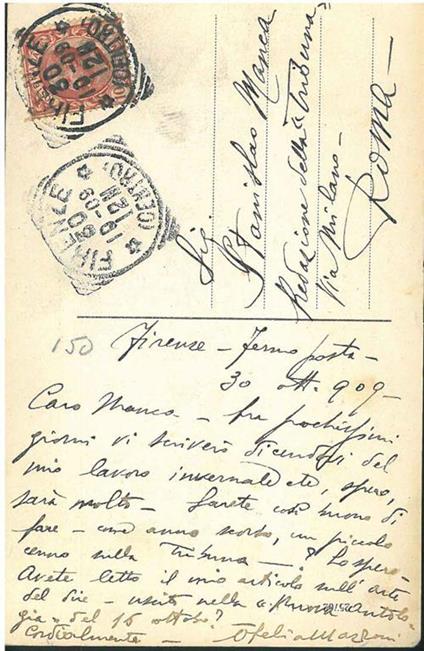 FIRENZE
(CENTRO)
FIRENZE
(CENTRO)
Sig.
Stanislao Manca
Redazione della "Tribuna"
Via Milano -
Roma -
150
Firenze - fermo posta -
30 ott. 909 -
Caro Manca - fra pochissimi
giorni vi scriverò dicendovi del
mio lavoro invernale che, spero,
sarà molto - Sarete così buono di
fare - come anno scorso, un piccolo
cenno sulla Tribuna - ? Lo spero -
Avete letto il mio articolo sull'arte
del dire - uscito nella "Nuova Antolo-
gia" del 16 ottobre?
Cordialmente - Ofelia Mazzoni